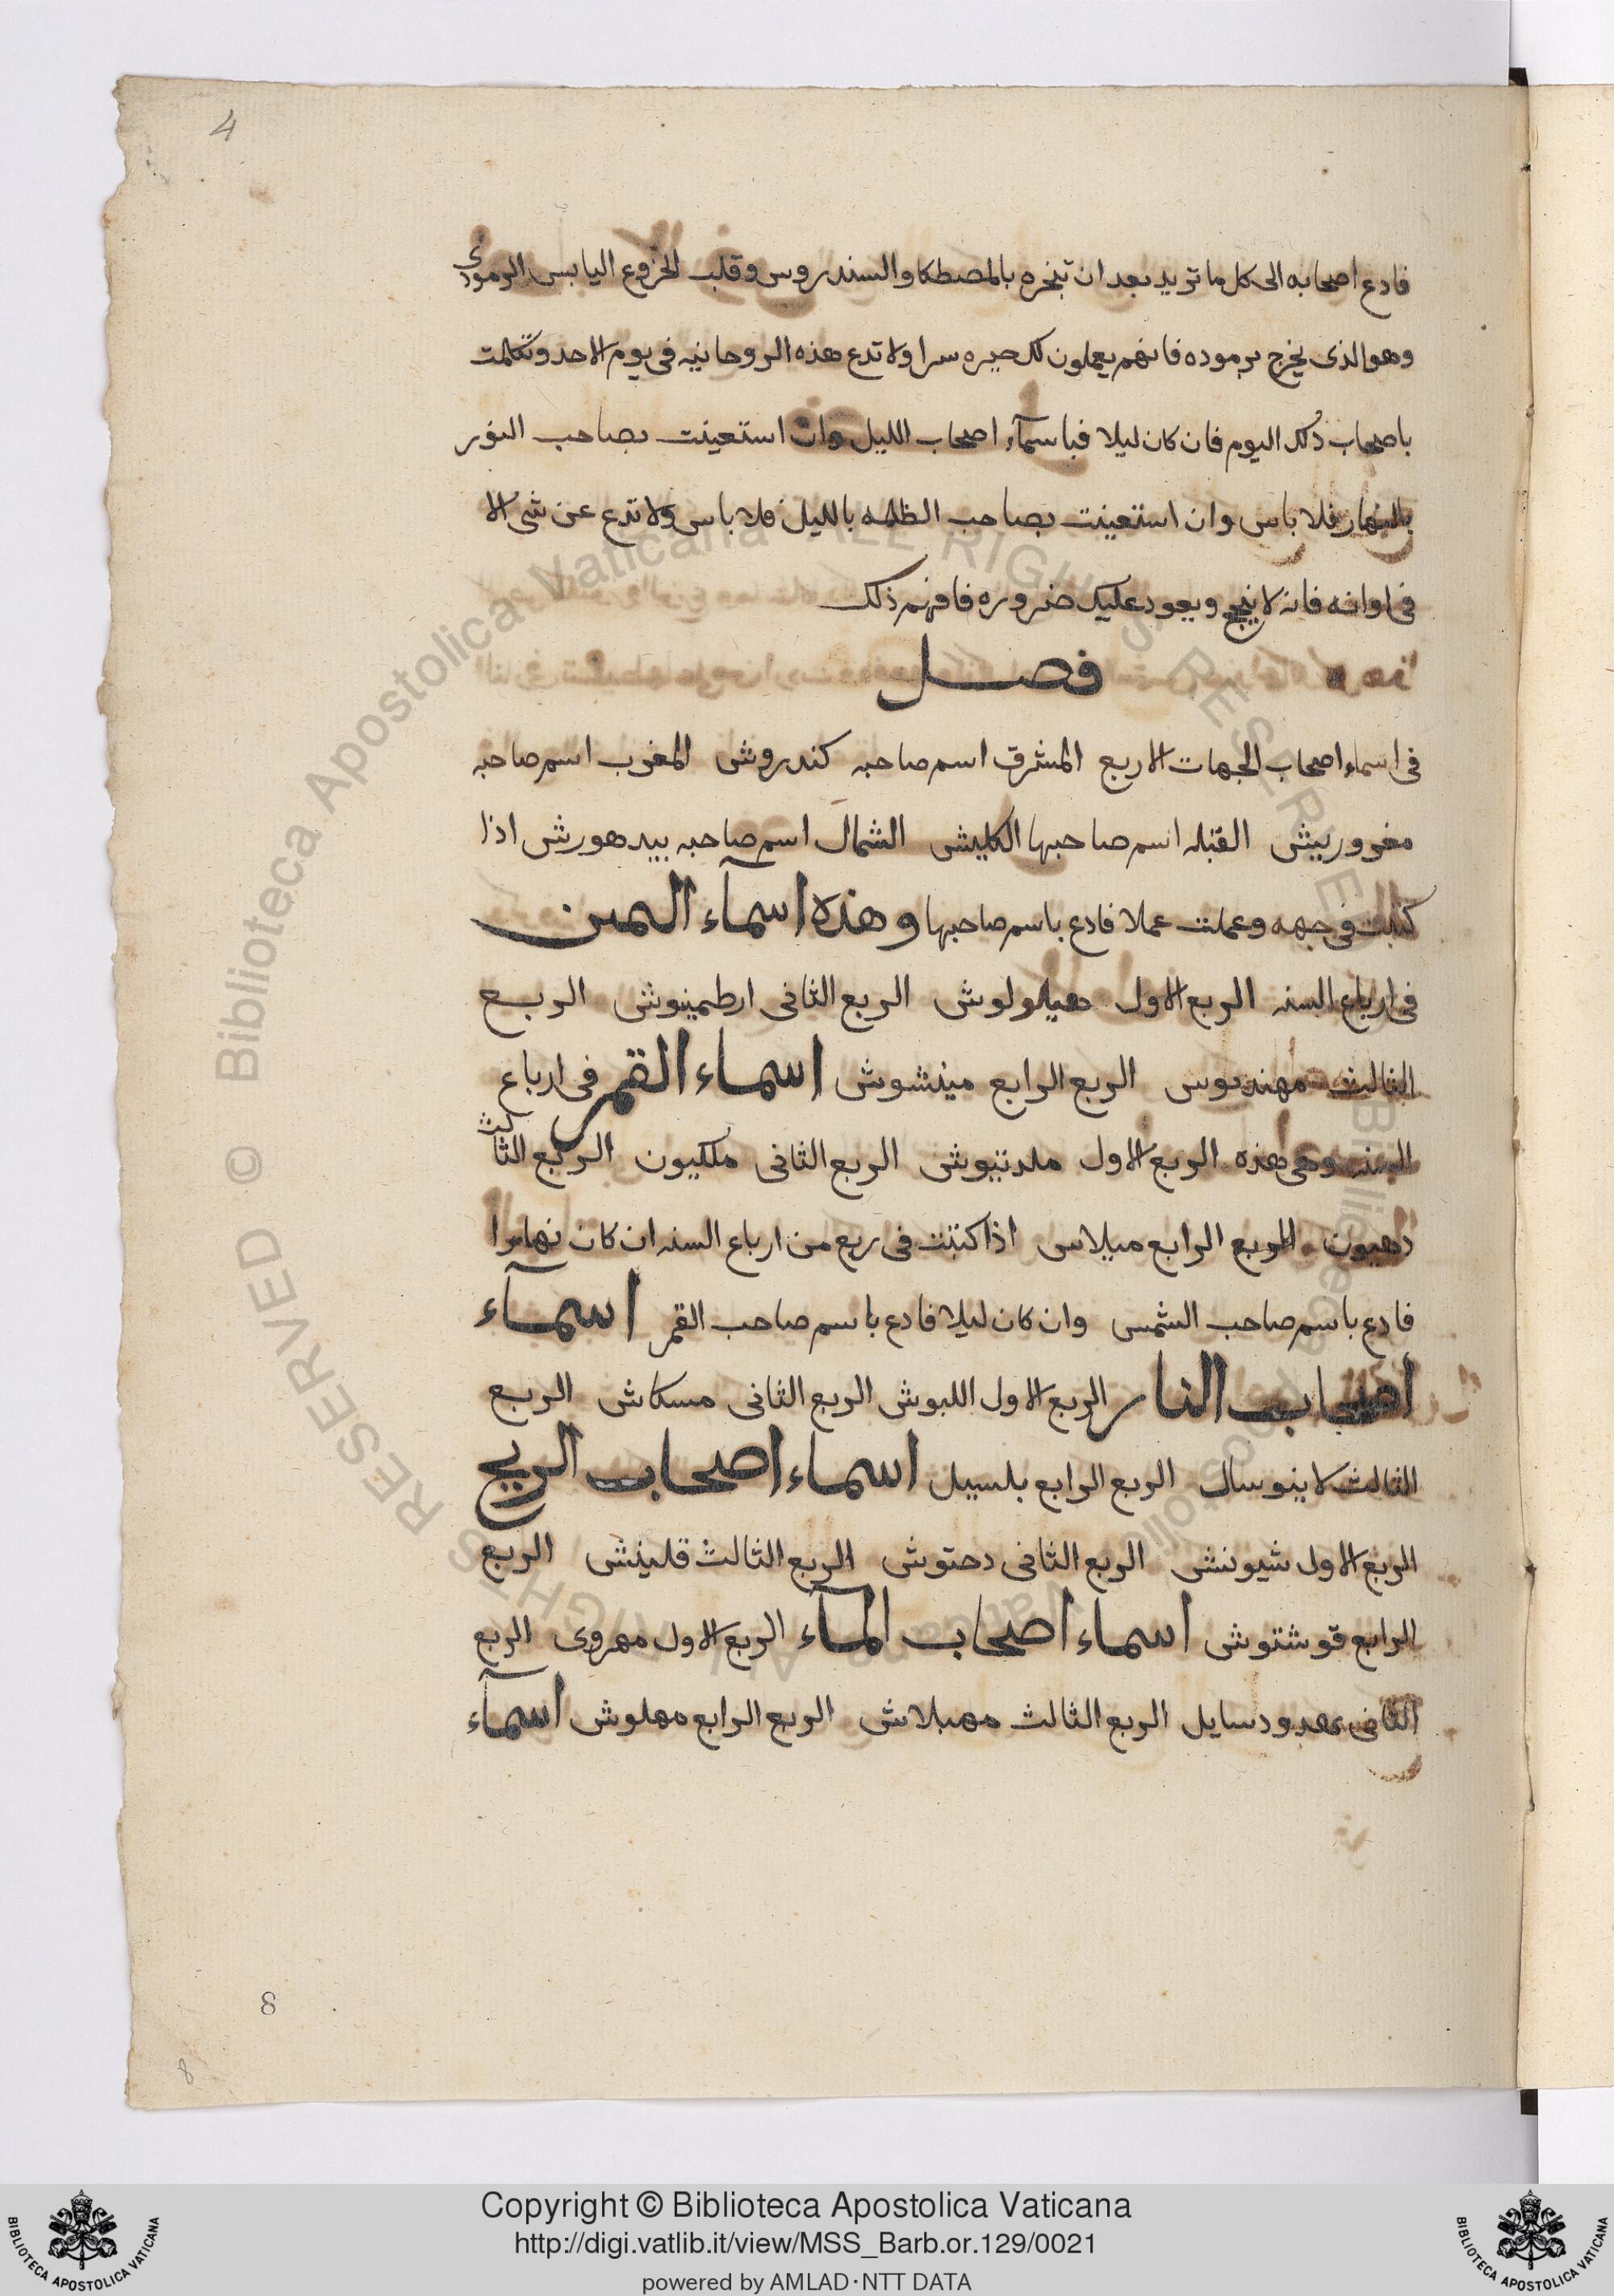 4
فادع اصحابه الى كل ما تريد بعد ان تبخره بالمصطكا والسندروس وقلب الخروع اليابس الرمودى
وهو الذى يخرج برموده فانهم يعملون لك حيره سرا ولا تدع هذه الروحانيه فى يوم الاحد وتكلمت
باصحاب ذلك اليوم فان كان ليلا فباسمآء اصحاب الليل وان استعينت بصاحب النور
بالنهار فلا باس وان استعينت بصاحب الظلمه بالليل فلا باس ولا تدع عن شى الا
فى اوانه فانه لا ينجح ويعود عليك ضروره فافهم ذلك
فصل
فى اسماء اصحاب الجهات الاربع المشرق اسم صاحبه كندروش المغرب اسم صاحبه
مغروربيش القبله اسم صاحبها الكليشى الشمال اسم صاحبه بيدهورش اذا
كتبت فى جهه وعملت عملا فادع باسم صاحبها وهذه اسمآء
فى ارباع السنه الربع الاول هيلولوش الربع الثانى ارطمينوش الربع
الثالث الربع الرابع مينشوش اسماء القمر فى ارباع
السنه وهى هذه الربع الاول ملدتيوش الربع الثانى ملكيون الربع الثالث
دهيون الربع الرابع ميلاس اذا كتبت فى ربع من ارباع السنه ان كان نهارا
فادع باسم صاحب الشمس وان كان ليلا فادع باسم صاحب القمر اسمآء
اصحاب النار الربع الاول اللبوش الربع الثانى مسكاش الربع
الثالث لاينوسال الربع الرابع بلسيل اسماء اصحاب الريح
الربع الاول شيونشى الربع الثانى دحتوش الربع الثالث قلينش الربع
الرابع قوشتوش اسماء اصحاب المآء الربع الاول مهروى الربع
الثانى الربع الثالث مهبلاش الربع الرابع مهلوش اسمآء
8
8
© Biblioteca Apostolica Vaticana ALL RIGHTS RESERVED
Copyright © Biblioteca Apostolica Vaticana
http://digi.vatlib.it/view/MSS_Barb.or.129/0021
powered by AMLAD·NTT DATA
BIBLIOTECA APOSTOLICA VATICANA
BIBLIOTECA APOSTOLICA VATICANA